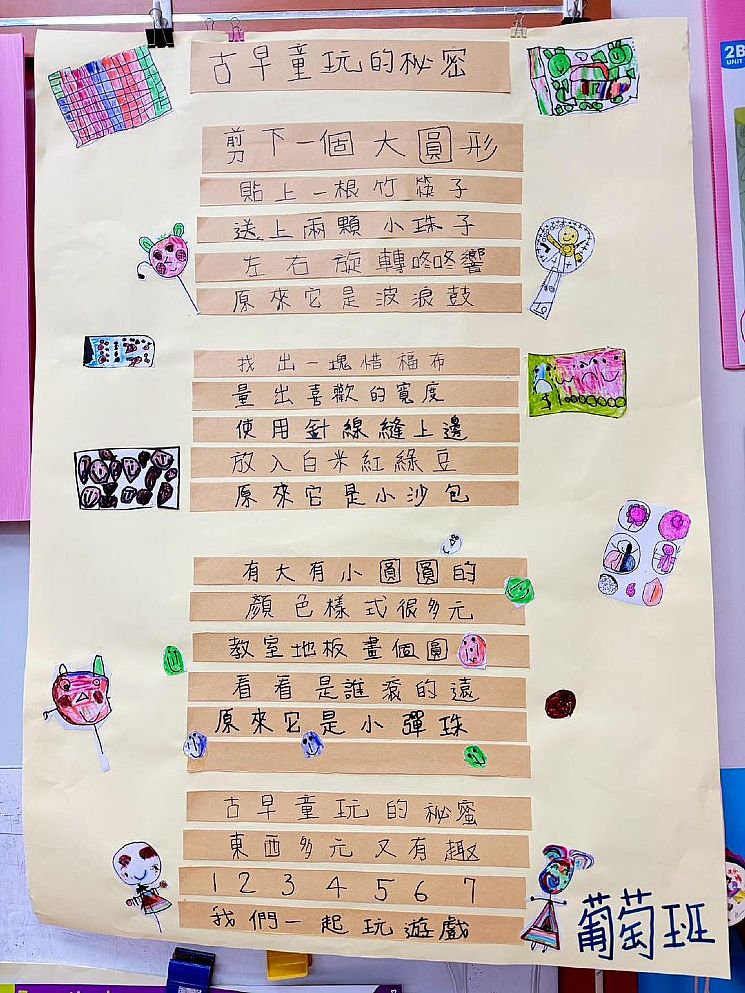 古早童玩的秘密
剪下一個大圓形
貼上一根竹筷子
送上兩顆小珠子
左右旋轉咚咚響
原來它是波浪鼓
找出一塊惜福布
量出喜歡的寬度
使用針線縫上邊
放入白米紅綠豆
原來它是小沙包
有大有小圓圓的
顏色樣式很多元
教室地板畫個圓
看看是誰滾的遠
原來它是小彈珠
古早童玩的秘蜜
東西多元又有趣
1 2 3 4 5 6 7
我們一起玩遊戲
葡萄班
2B
UNIT